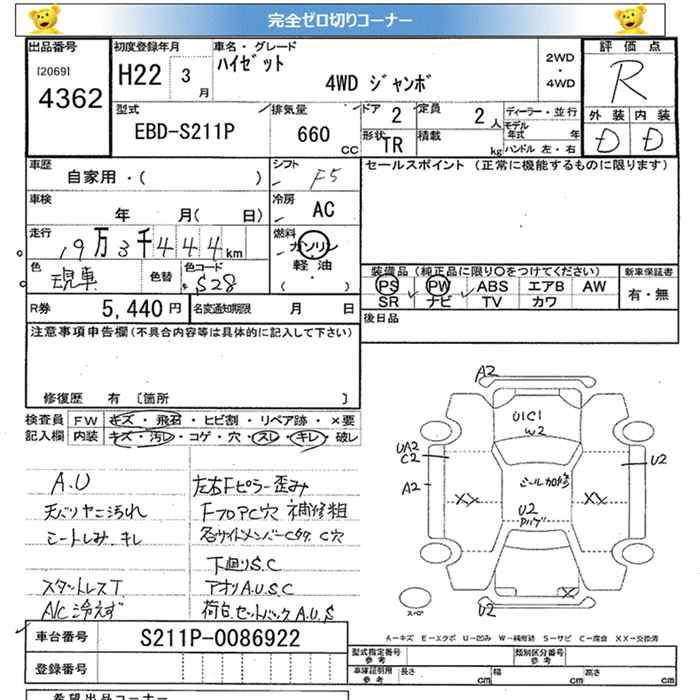 完全ゼロ切りコーナー
出品番号
[2069]
4362
初度登録年月
H22 3 月
車名・グレード
ハイゼット
4WD ジャンボ
2WD
・
4WD
評価点
R
外装 内装
D D
型式
EBD-S211P
排気量
660 cc
ドア 2
定員 2 人
形状 TR
積載 kg
ディーラー・並行
モデル年式 年
ハンドル 左・右
車歴
自家用・( )
シフト
F5
セールスポイント (正常に機能するものに限ります)
車検
年 月( 日)
冷房
AC
走行
19万3千444 km
燃料
ガソリン
軽油
( ・ )
色
現車
色替
色コード
S28
装備品 (純正品に限り○をつけてください)
PS PW ABS エアB AW
SR ナビ TV カワ
新車保証書
有・無
R券 5,440 円
名変通知期限 月 日
後日品
注意事項申告欄 (不具合内容等は具体的に記入して下さい)
修復歴 有 [箇所 ]
検査員記入欄
FW キズ・飛石・ヒビ割・リペア跡・×要
内装 キズ・汚レ・コゲ・穴・スレ・キレ・破レ
A.U
天バリヤニ汚れ
シートしみ、キレ
スタットレスT
A/C冷えず
左右Fピラー歪み
Fフロア C穴 補修粗
各サイドメンバーCタタ C穴
下回りS.C
アオリA.U.S.C
荷台、セットバックA.U.S
A2
U1C1
W2
UA2
C2
A2
XX
シール加修
XX
U2
U2
X
U2
スペア
A-キズ E-エクボ U-凹み W-補修跡 S-サビ C-腐食 XX-交換済
車台番号
S211P-0086922
登録番号
型式指定番号
参考
類別区分番号
参考
車庫証明用
参考
長さ cm
幅 cm
高さ cm
希望出品コーナー